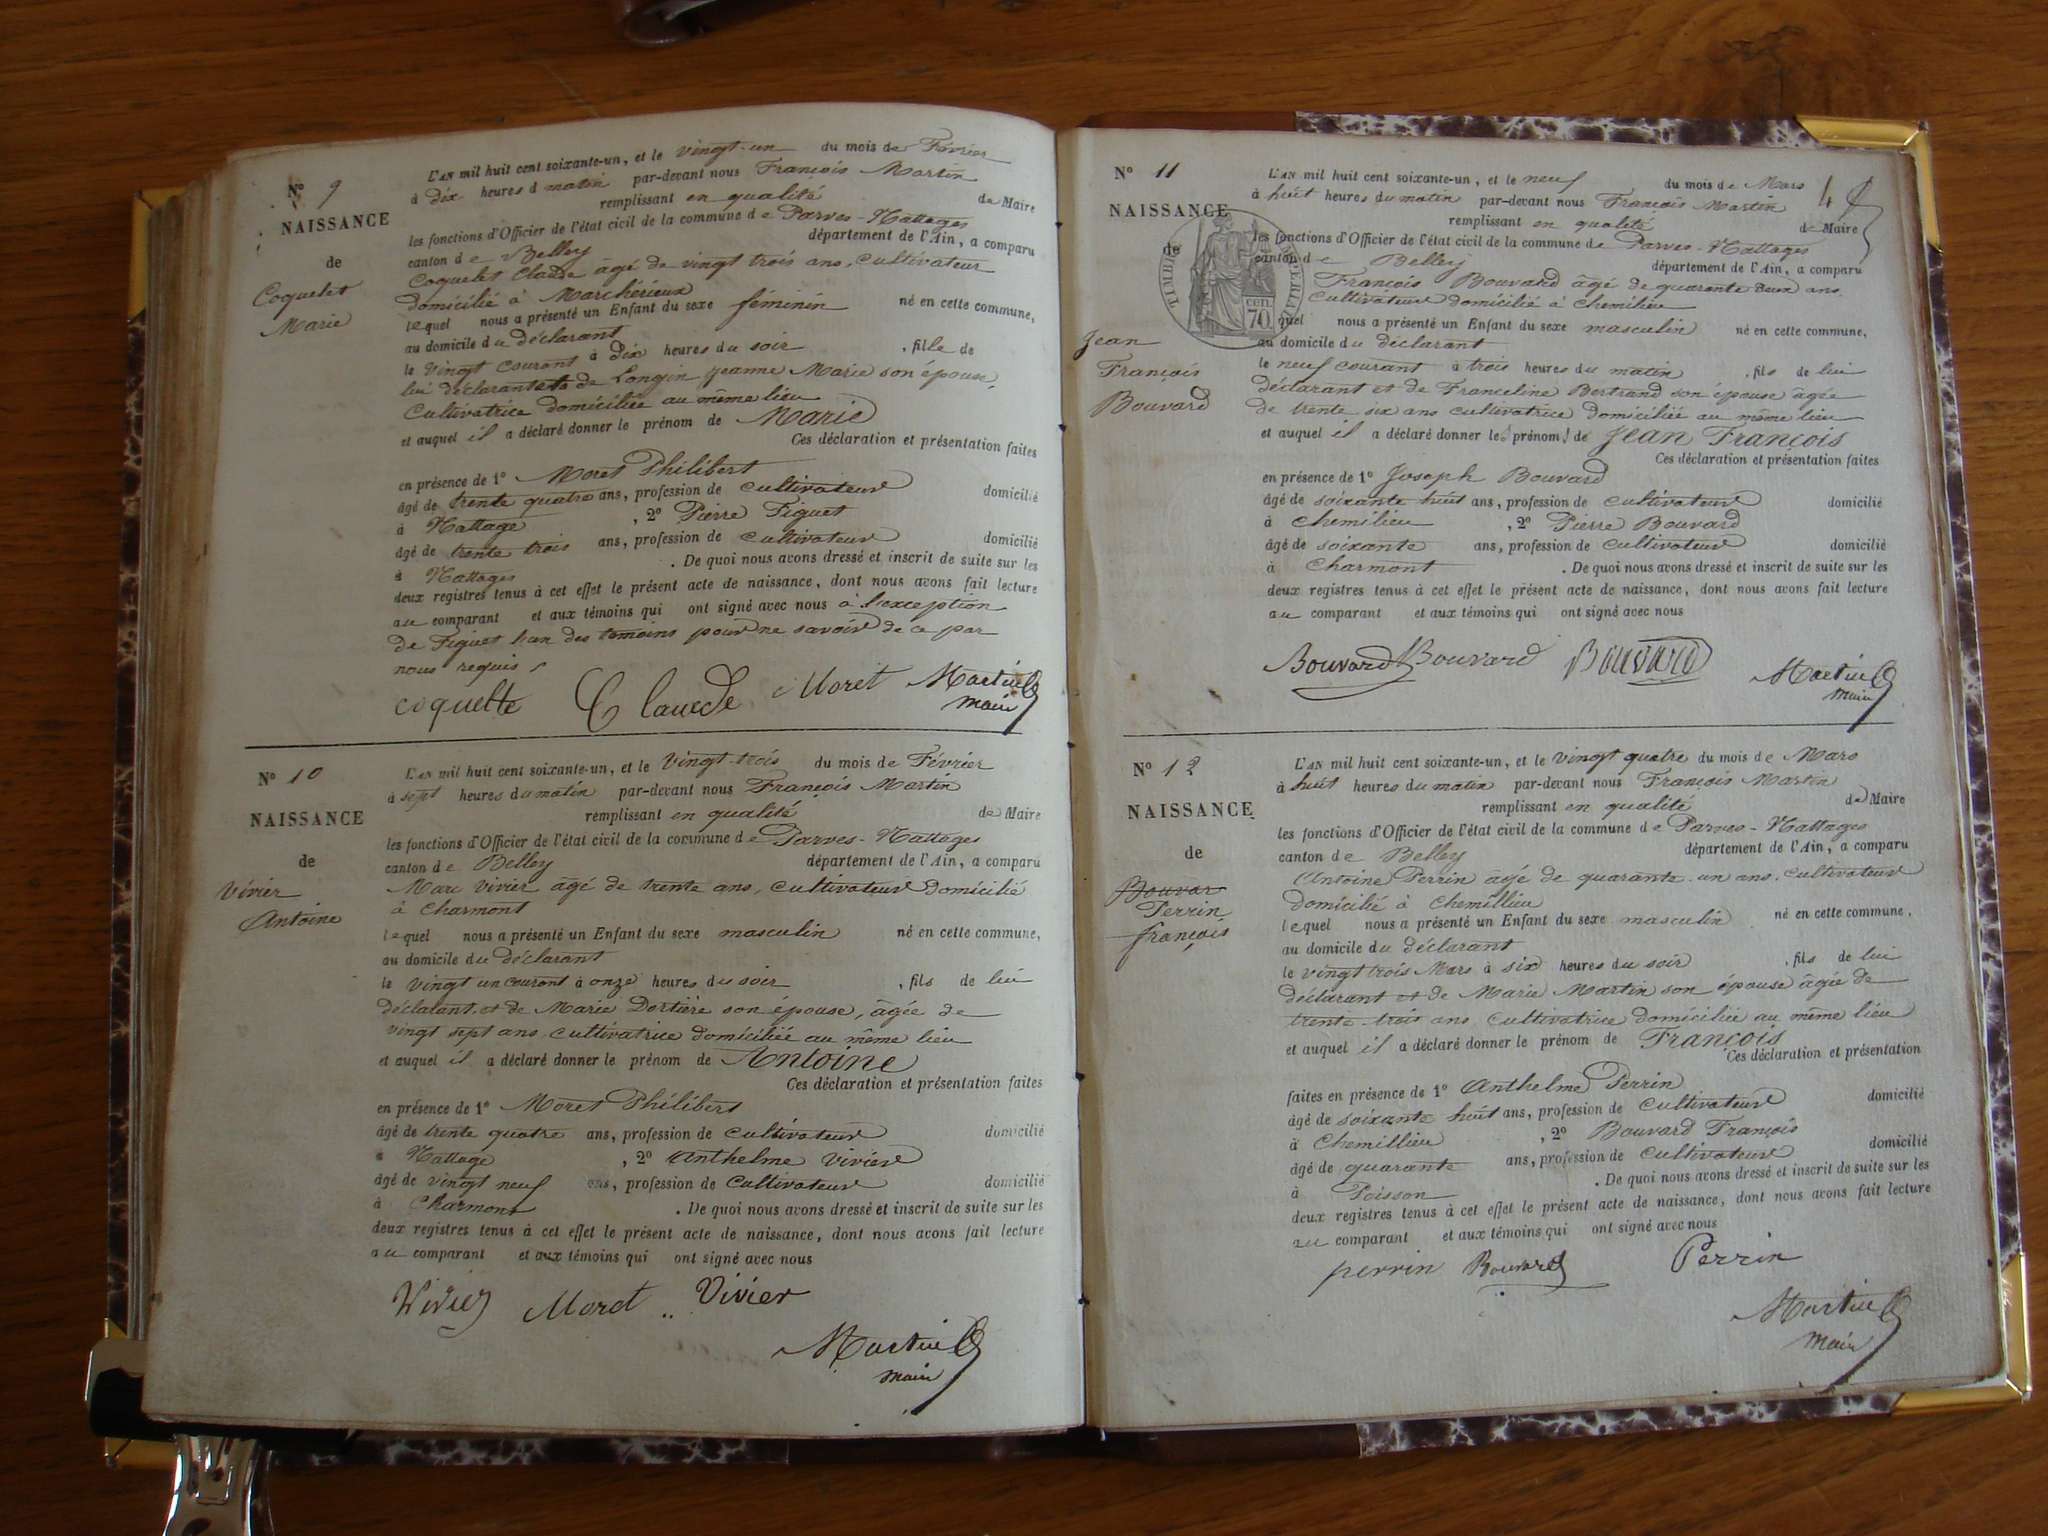 N° 9
NAISSANCE
de
Coquelet
Marie
L'AN mil huit cent soixante-un, et le vingt-un du mois de Février
à Dix heures d matin par-devant nous François Martin
remplissant en qualité de Maire
les fonctions d'Officier de l'état civil de la commune de Parves-Nattages
canton de Belley département de l'Ain, a comparu
Coquelet Claude âgé de vingt trois ans, cultivateur
domicilié à Marchérieux
lequel nous a présenté un Enfant du sexe féminin né en cette commune,
au domicile du déclarant
le vingt courant à dix heures du soir, fille de
lui déclarant et de Longin Jeanne Marie son épouse,
cultivatrice domiciliée au même lieu
et auquel il a déclaré donner le prénom de Marie
Ces déclaration et présentation faites
en présence de 1° Moret Philibert
âgé de trente quatre ans, profession de cultivateur domicilié
à Nattage, 2° Pierre Figuet
âgé de trente trois ans, profession de cultivateur domicilié
à Nattages. De quoi nous avons dressé et inscrit de suite sur les
deux registres tenus à cet effet le présent acte de naissance, dont nous avons fait lecture
au comparant et aux témoins qui ont signé avec nous à l'exception
de Figuet l'un des témoins pour ne savoir de ce par
nous requis
coquelte Claude Moret Martin
maire
N° 10
NAISSANCE
de
Vivier
Antoine
L'AN mil huit cent soixante-un, et le vingt-trois du mois de Février
à sept heures du matin par-devant nous François Martin
remplissant en qualité de Maire
les fonctions d'Officier de l'état civil de la commune de Parves-Nattages
canton de Belley département de l'Ain, a comparu
Marc Vivier âgé de trente ans, cultivateur domicilié
à Charmont
lequel nous a présenté un Enfant du sexe masculin né en cette commune,
au domicile du déclarant
le vingt un courant à onze heures du soir, fils de lui
déclarant et de Marie Dortière son épouse, âgée de
vingt sept ans cultivatrice domiciliée au même lieu
et auquel il a déclaré donner le prénom de Antoine
Ces déclaration et présentation faites
en présence de 1° Moret Philibert
âgé de trente quatre ans, profession de cultivateur domicilié
à Nattage, 2° Anthelme Vivier
âgé de vingt neuf ans, profession de cultivateur domicilié
à Charmont. De quoi nous avons dressé et inscrit de suite sur les
deux registres tenus à cet effet le présent acte de naissance, dont nous avons fait lecture
au comparant et aux témoins qui ont signé avec nous
Vivier Moret Vivier
Martin
maire
N° 11
NAISSANCE
de
Jean
François
Bouvard
TIMBRE IMPERIAL
70 cen.
L'AN mil huit cent soixante-un, et le neuf du mois de Mars
à huit heures du matin par-devant nous François Martin
remplissant en qualité de Maire
les fonctions d'Officier de l'état civil de la commune de Parves-Nattages
canton de Belley département de l'Ain, a comparu
François Bouvard âgé de quarante deux ans
cultivateur domicilié à Chemilieu
quel nous a présenté un Enfant du sexe masculin né en cette commune,
au domicile du déclarant
le neuf courant à trois heures du matin, fils de lui
déclarant et de Franceline Bertrand son épouse âgée
de trente six ans cultivatrice domiciliée au même lieu
et auquel il a déclaré donner les prénoms de Jean François
Ces déclaration et présentation faites
en présence de 1° Joseph Bouvard
âgé de soixante huit ans, profession de cultivateur domicilié
à Chemilieu, 2° Pierre Bouvard
âgé de soixante ans, profession de cultivateur domicilié
à Charmont. De quoi nous avons dressé et inscrit de suite sur les
deux registres tenus à cet effet le présent acte de naissance, dont nous avons fait lecture
au comparant et aux témoins qui ont signé avec nous
Bouvard Bouvard Bouvard Martin
maire
N° 12
NAISSANCE
de
Bouvar
Perrin
françois
L'AN mil huit cent soixante-un, et le vingt quatre du mois de Mars
à huit heures du matin par-devant nous François Martin
remplissant en qualité de Maire
les fonctions d'Officier de l'état civil de la commune de Parves-Nattages
canton de Belley département de l'Ain, a comparu
Antoine Perrin âgé de quarante-un ans, cultivateur
domicilié à Chemillieu
lequel nous a présenté un Enfant du sexe masculin né en cette commune,
au domicile du déclarant
le vingt trois Mars à six heures du soir, fils de lui
déclarant et de Marie Martin son épouse âgée de
trente-trois ans cultivatrice domiciliée au même lieu
et auquel il a déclaré donner le prénom de François
Ces déclaration et présentation
faites en présence de 1° Anthelme Perrin
âgé de soixante huit ans, profession de cultivateur domicilié
à Chemillieu, 2° Bouvard François
âgé de quarante ans, profession de cultivateur domicilié
à Poisson. De quoi nous avons dressé et inscrit de suite sur les
deux registres tenus à cet effet le présent acte de naissance, dont nous avons fait lecture
au comparant et aux témoins qui ont signé avec nous
perrin Bouvard Perrin
Martin
maire